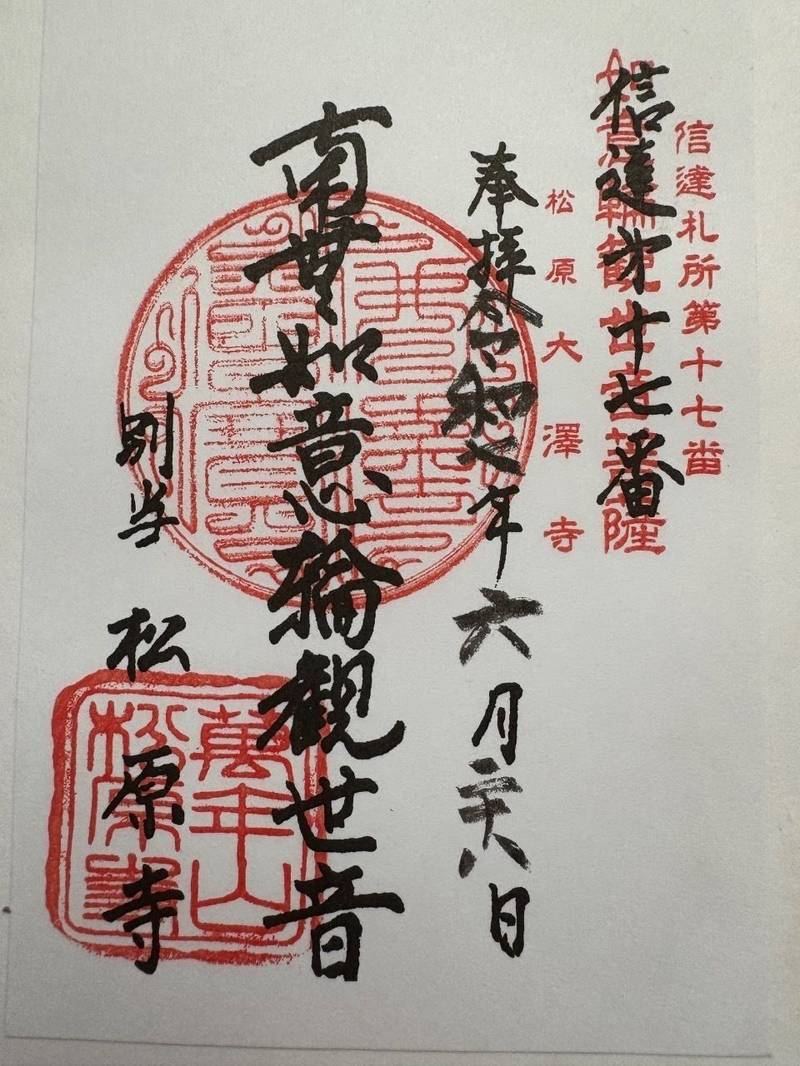 信達札所第十七番
如意輪観世音菩薩
信達才十七番
松原大澤寺
奉拝令和七年六月二十八日
南無如意輪観世音
別当 松原寺
萬年山
松原寺